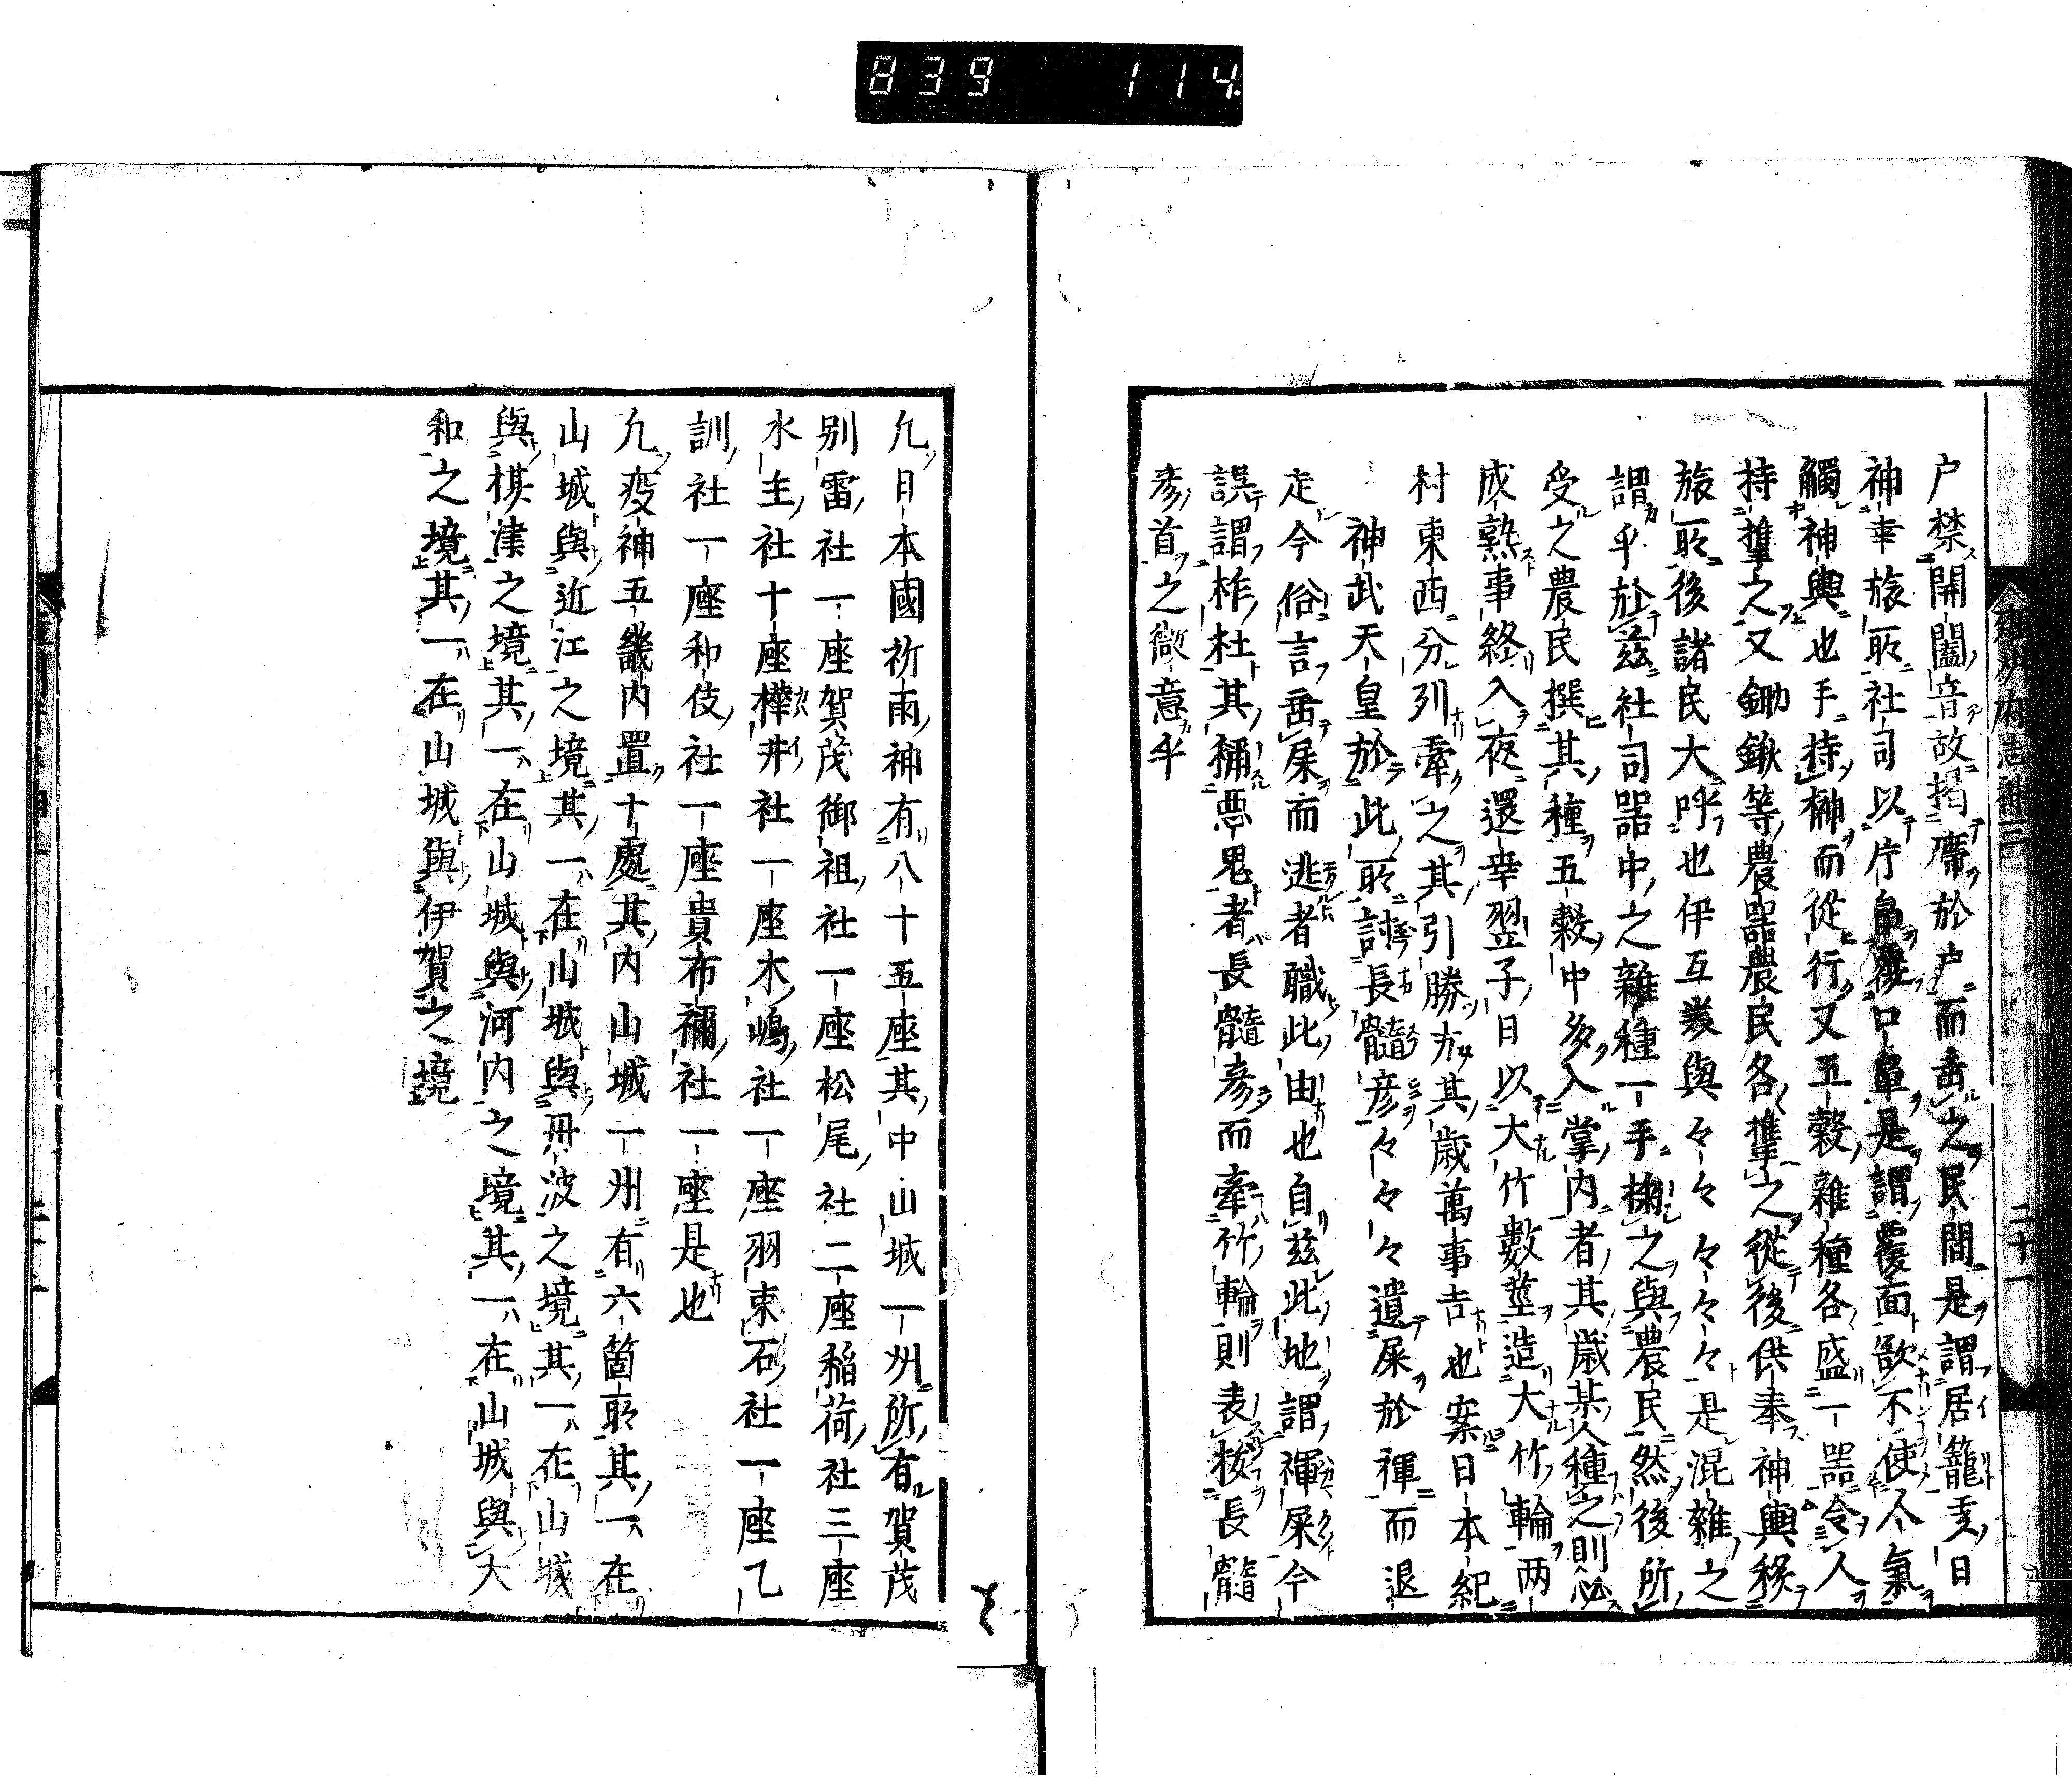 839 114
雍州府志神三
二十一
户禁開闔音故掲席於户而垂之民間是謂居籠亥日
神幸旅所社司以片帛覆口鼻是謂覆面欲不使人氣
觸神輿也手持榊而從行又五穀雜種各盛一器令人
持攜之又鋤鍬等農器農民各攜之從後供奉神輿移
旅所後諸民大呼也伊互義與々々々々々是混雜之
謂乎於茲社司器中之雜種一手掬之與農民然後所
受之農民撰其種五穀中多入掌内者其歳其人種之則必
成熟事終入夜還幸翌子日以大竹數莖造大竹輪两
村東西分列牽之其引勝方其歳萬事吉也案日本紀
神武天皇於此所討長髓彦々々々遺屎於褌而退
走今俗言垂屎而逃者職此由也自茲此地謂褌屎今
誤謂柞杜其稱惡鬼者長髓彦而牽竹輪則表梭長髓
彦首之微意乎
凢日本國祈雨神有八十五座其中山城一州所有賀茂
别雷社一座賀茂御祖社一座松尾社二座稲荷社三座
水主社十座樺井社一座木嶋社一座羽束石社一座乙
訓社一座和伎社一座貴布禰社一座是也
凢疫神五畿内置十處其内山城一州有六箇所其一在
山城與近江之境其一在山城與丹波之境其一在山城
與摂津之境其一在山城與河内之境其一在山城與大
和之境其一在山城與伊賀之境